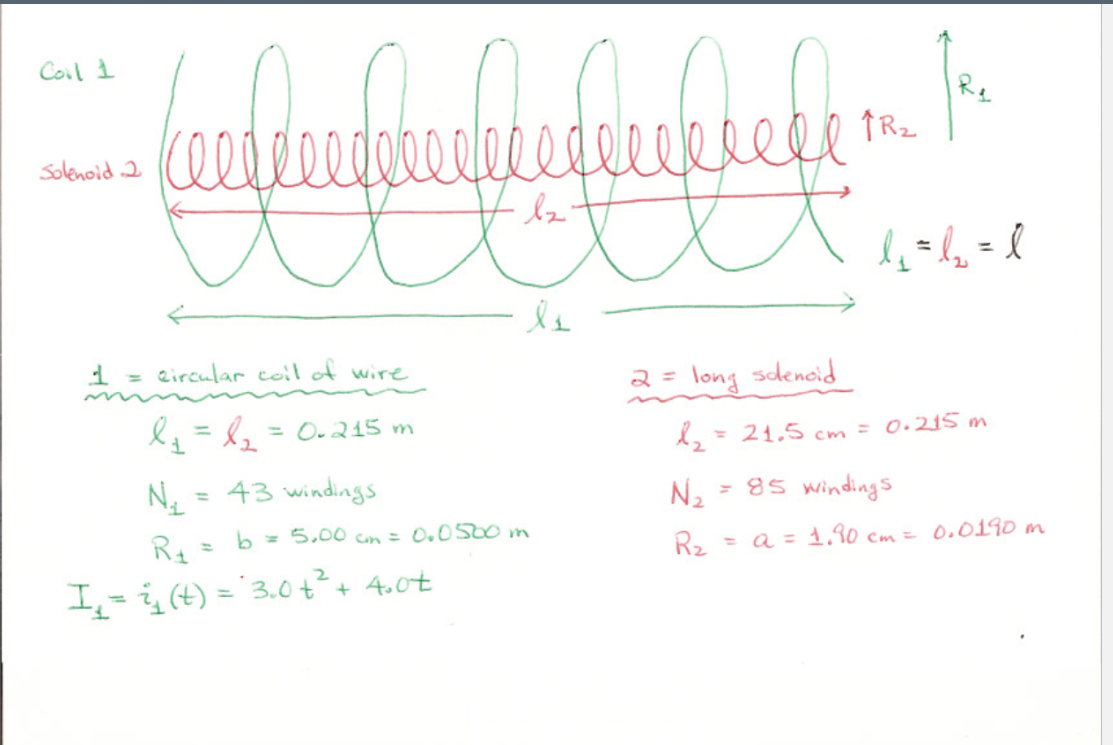 Coil 1
R₁
↑R₂
Solenoid 2
l₂
l₁ = l₂ = l
l₁
1 = circular coil of wire
l₁ = l₂ = 0.215 m
N₁ = 43 windings
R₁ = b = 5.00 cm = 0.0500 m
I₁ = i₁(t) = 3.0t² + 4.0t
2 = long solenoid
l₂ = 21.5 cm = 0.215 m
N₂ = 85 windings
R₂ = a = 1.90 cm = 0.0190 m